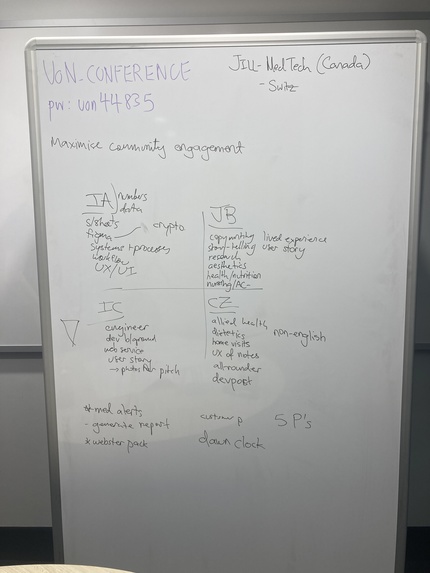 UON-CONFERENCE
pw: uon44835
JILL-MedTech (Canada)
- Switz
Maximise community engagement
IA
numbers
data
s/sheets
figma
crypto
systems + processes
workflow
UX/UI
JB
copywriting
lived experience
story-telling
user story
research
aesthetics
health/nutrition
nursing/AC
IC
engineer
dev b/ground
web service
user story
→ photos for pitch
CZ
allied health
dietetics
non-english
home visits
UX of notes
allrounder
devpost
* med alerts
- generate report
* webster pack
customer p
5 P's
down clock